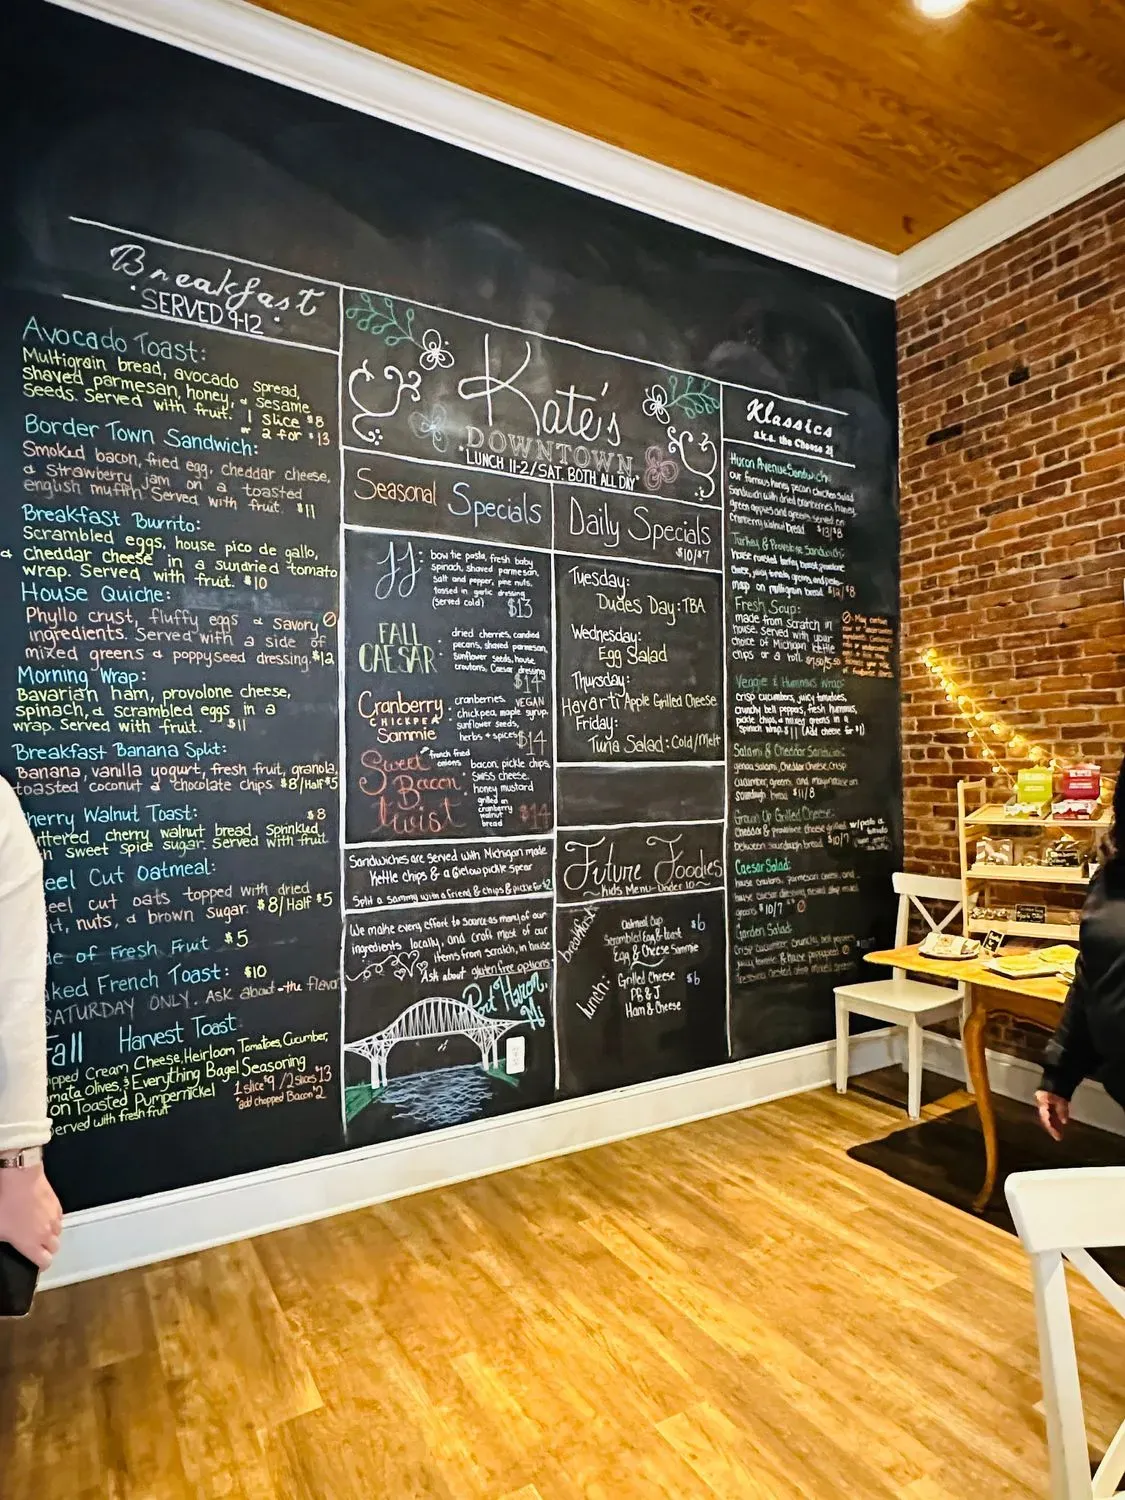 Breakfast
SERVED 9-12
Avocado Toast:
Multigrain bread, avocado spread,
shaved parmesan, honey, & sesame
seeds. Served with fruit. 1 slice $8
or 2 for $13
Border Town Sandwich:
Smoked bacon, fried egg, cheddar cheese,
& strawberry jam on a toasted
english muffin. Served with fruit. $11
Breakfast Burrito:
Scrambled eggs, house pico de gallo,
& cheddar cheese in a sundried tomato
wrap. Served with fruit. $10
House Quiche:
Phyllo crust, fluffy eggs & savory
ingredients. Served with a side of
mixed greens & poppyseed dressing. $12
Morning Wrap:
Bavarian ham, provolone cheese,
spinach, & scrambled eggs in a
wrap. Served with fruit. $11
Breakfast Banana Split:
Banana, vanilla yogurt, fresh fruit, granola,
toasted coconut & chocolate chips. $8/Half $5
herry Walnut Toast: $8
ttered cherry walnut bread. Sprinkled
h sweet spice sugar. Served with fruit
eel Cut Oatmeal:
eel cut oats topped with dried
t, nuts, & brown sugar. $8/Half $5
e of Fresh Fruit $5
ked French Toast: $10
SATURDAY ONLY. Ask about the flavor
Fall Harvest Toast
ipped Cream Cheese, Heirloom Tomatoes, Cucumber,
mata Olives, & Everything Bagel Seasoning
on Toasted Pumpernickel 1 slice $9 / 2 slices $13
Served with fresh fruit *add chopped Bacon $2
Kate's
DOWNTOWN
*LUNCH 11-2/SAT. BOTH ALL DAY*
Seasonal Specials
JJ: bow tie pasta, fresh baby
spinach, shaved parmesan,
salt and pepper, pine nuts,
tossed in garlic dressing
(served cold) $13
FALL CAESAR: dried cherries, candied
pecans, shaved parmesan,
sunflower seeds, house
croutons, Caesar dressing
$14
Cranberry CHICKPEA Sammie: cranberries, VEGAN
chickpea, maple syrup,
sunflower seeds,
herbs + spices $14
Sweet Bacon Twist: french fried onions
bacon, pickle chips,
swiss cheese,
honey mustard
grilled on cranberry walnut bread $14
Sandwiches are served with Michigan made
Kettle chips & a Gielow pickle spear
Split a sammy with a friend & chips & pickle for $2
We make every effort to source as many of our
ingredients locally, and craft most of our
items from scratch, in house
Ask about gluten free options
Port Huron, Mi
Daily Specials
$10/$7
Tuesday:
Dudes Day: TBA
Wednesday:
Egg Salad
Thursday:
Havarti Apple Grilled Cheese
Friday:
Tuna Salad: Cold/Melt
Future Foodies
~Kids Menu-Under 10~
breakfast:
Oatmeal Cup
Scrambled Egg & toast $6
Egg & Cheese Sammie
lunch:
Grilled Cheese $6
PB & J
Ham & Cheese
Klassics
a.k.a. the Cheese 21
Huron Avenue Sandwich:
our famous honey pecan chicken salad
Sandwich with dried cranberries, honey,
green apples and greens served on
cranberry walnut bread $13/$8
Turkey & Provolone Sandwich:
house roasted turkey breast, provolone
cheese, juicy tomato, greens, and pesto
mayo on multigrain bread $12/$8
Fresh Soup:
made from scratch in
house. Served with your
choice of Michigan kettle
chips or a roll. $7.50/5.50
Veggie & Hummus Wrap:
crisp cucumbers, juicy tomatoes,
crunchy bell peppers, fresh hummus,
pickle chips, & mixed greens in a
Spinach wrap. $11 (Add cheese for $1)
Salami & Cheddar Sandwich:
genoa salami, Cheddar Cheese, crisp
cucumber, greens, and mayonnaise on
sourdough bread $11/8
Grown Up Grilled Cheese:
Cheddar & provolone cheese grilled
between sourdough bread $10/7
Caesar Salad:
house croutons, parmesan cheese, and
house caesar dressing
greens $10/7
Garden Salad:
Crisp cucumber, crunchy bell peppers,